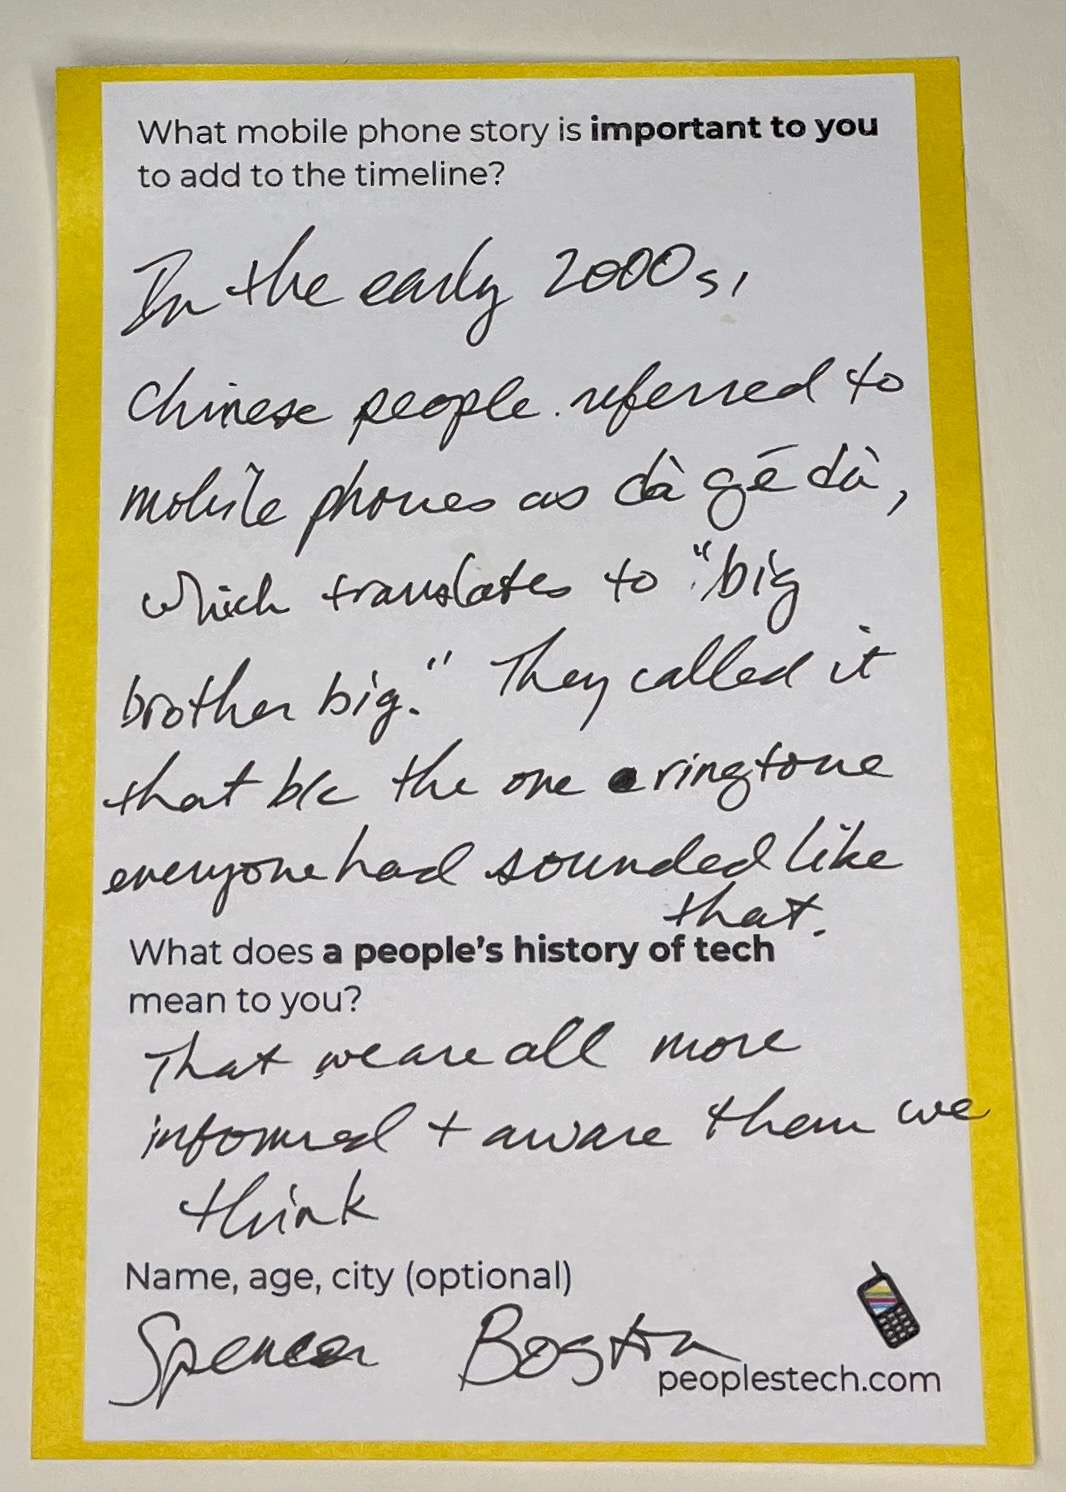 What mobile phone story is important to you
to add to the timeline?
In the early 2000s,
Chinese people referred to
mobile phones as dà gē dà,
which translates to "big
brother big." They called it
that b/c the one ringtone
everyone had sounded like
that.
What does a people's history of tech
mean to you?
That we are all more
informed + aware than we
think
Name, age, city (optional)
Spencer Boston
peoplestech.com